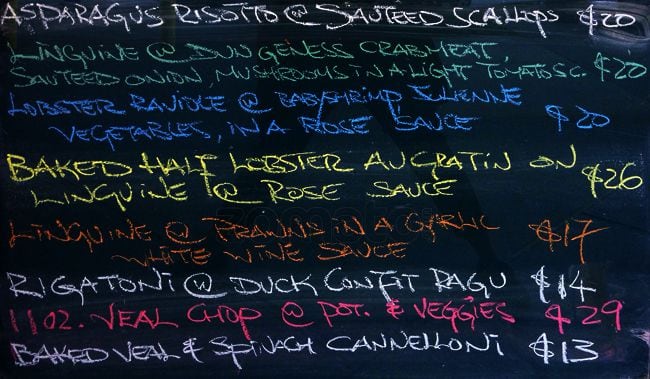 ASPARAGUS RISOTTO @ SAUTEED SCALLOPS $20
LINGUINE @ DUNGENESS CRABMEAT,
SAUTEED ONION MUSHROOMS IN A LIGHT TOMATO SC. $20
LOBSTER RAVIOLE @ BABYSHRIMP JULIENNE
VEGETABLES, IN A ROSE SAUCE $20
BAKED HALF LOBSTER AU GRATIN ON
LINGUINE @ ROSE SAUCE $26
LINGUINE @ PRAWNS IN A GARLIC
WHITE WINE SAUCE $17
RIGATONI @ DUCK CONFIT RAGU $14
11OZ. VEAL CHOP @ POT. & VEGGIES $29
BAKED VEAL & SPINACH CANNELLONI $13